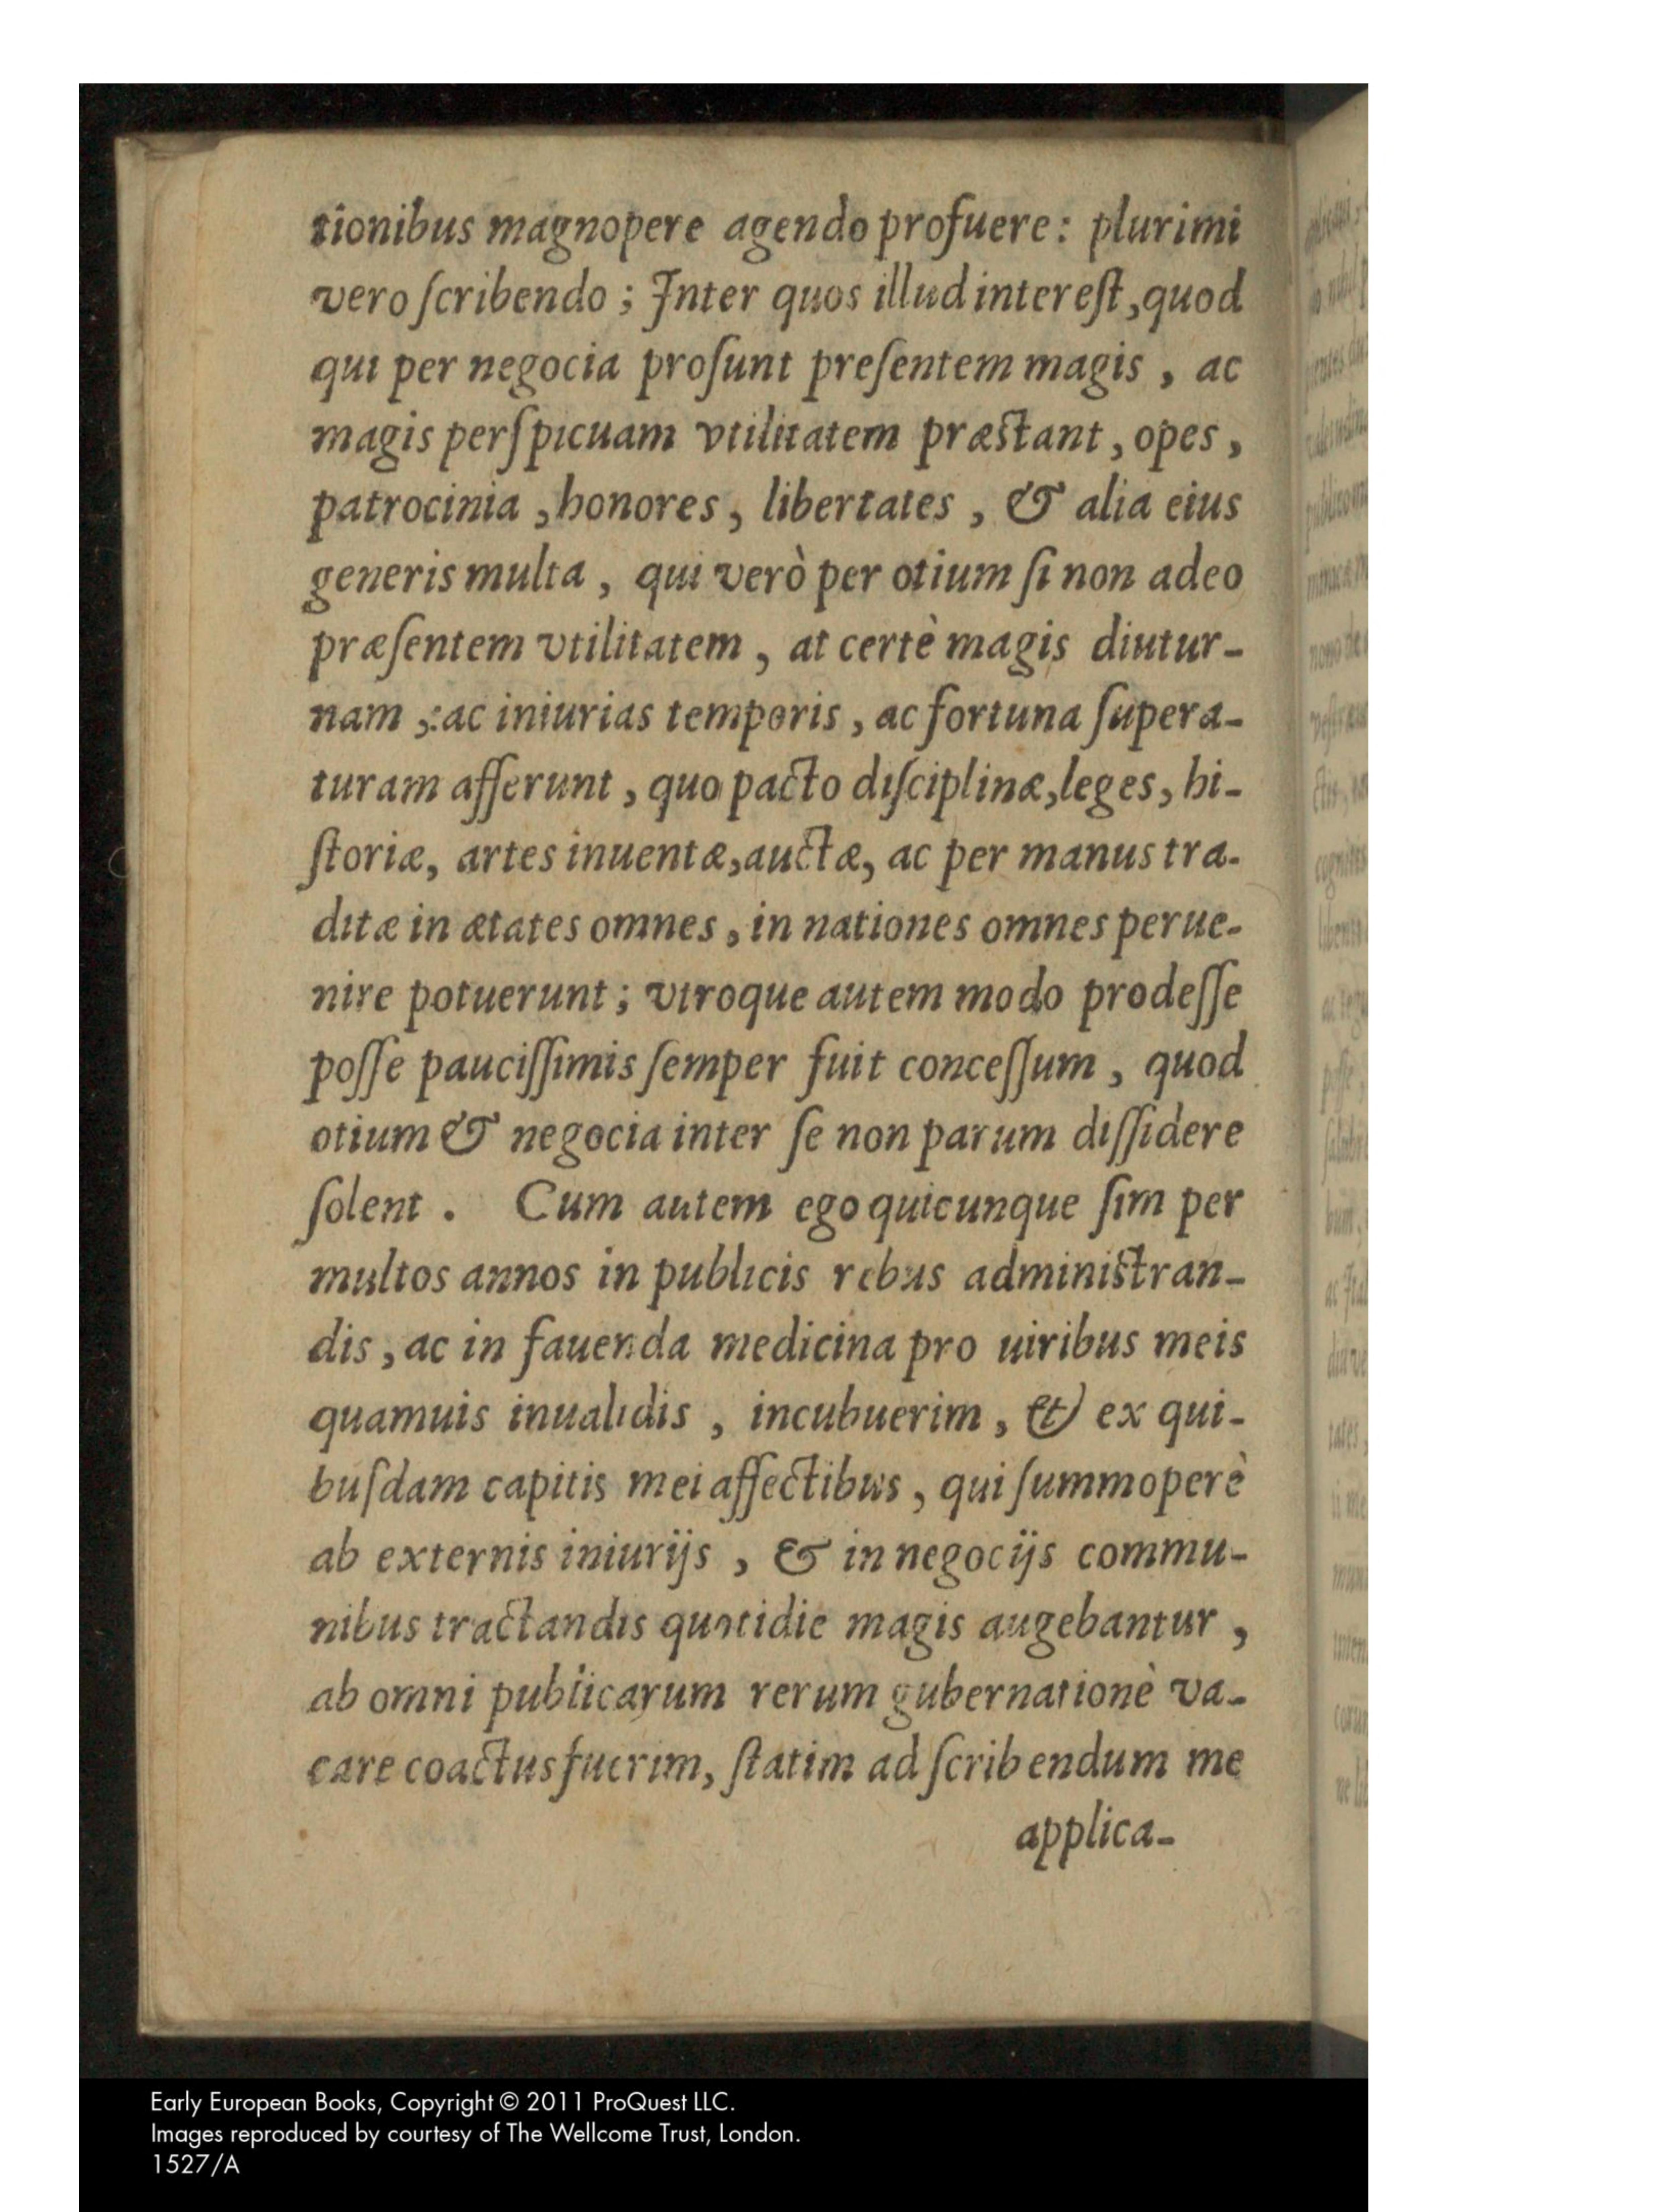 tionibus magnopere agendo profuere: plurimi
vero ſcribendo; Inter quos illud intereſt, quod
qui per negocia proſunt preſentem magis, ac
magis perſpicuam vtilitatem præſtant, opes,
patrocinia, honores, libertates, & alia eius
generis multa, qui verò per otium ſi non adeo
præſentem vtilitatem, at certè magis diutur-
nam, : ac iniurias temporis, ac fortuna ſupera-
turam afferunt, quo pacto diſciplinæ, leges, hi-
ſtoriæ, artes inuentæ, auctæ, ac per manus tra-
ditæ in ætates omnes, in nationes omnes perue-
nire potuerunt; vtroque autem modo prodeſſe
poſſe pauciſſimis ſemper fuit conceſſum, quod
otium & negocia inter ſe non parum diſſidere
ſolent. Cum autem ego quicunque ſim per
multos annos in publicis rebus adminiſtran-
dis, ac in fauenda medicina pro uiribus meis
quamuis inualidis, incubuerim, & ex qui-
buſdam capitis mei affectibus, qui ſummoperè
ab externis iniurijs, & in negocijs commu-
nibus tractandis quotidie magis augebantur,
ab omni publicarum rerum gubernationè va-
care coactus fuerim, ſtatim ad ſcribendum me
applica-
Early European Books, Copyright © 2011 ProQuest LLC.
Images reproduced by courtesy of The Wellcome Trust, London.
1527/A